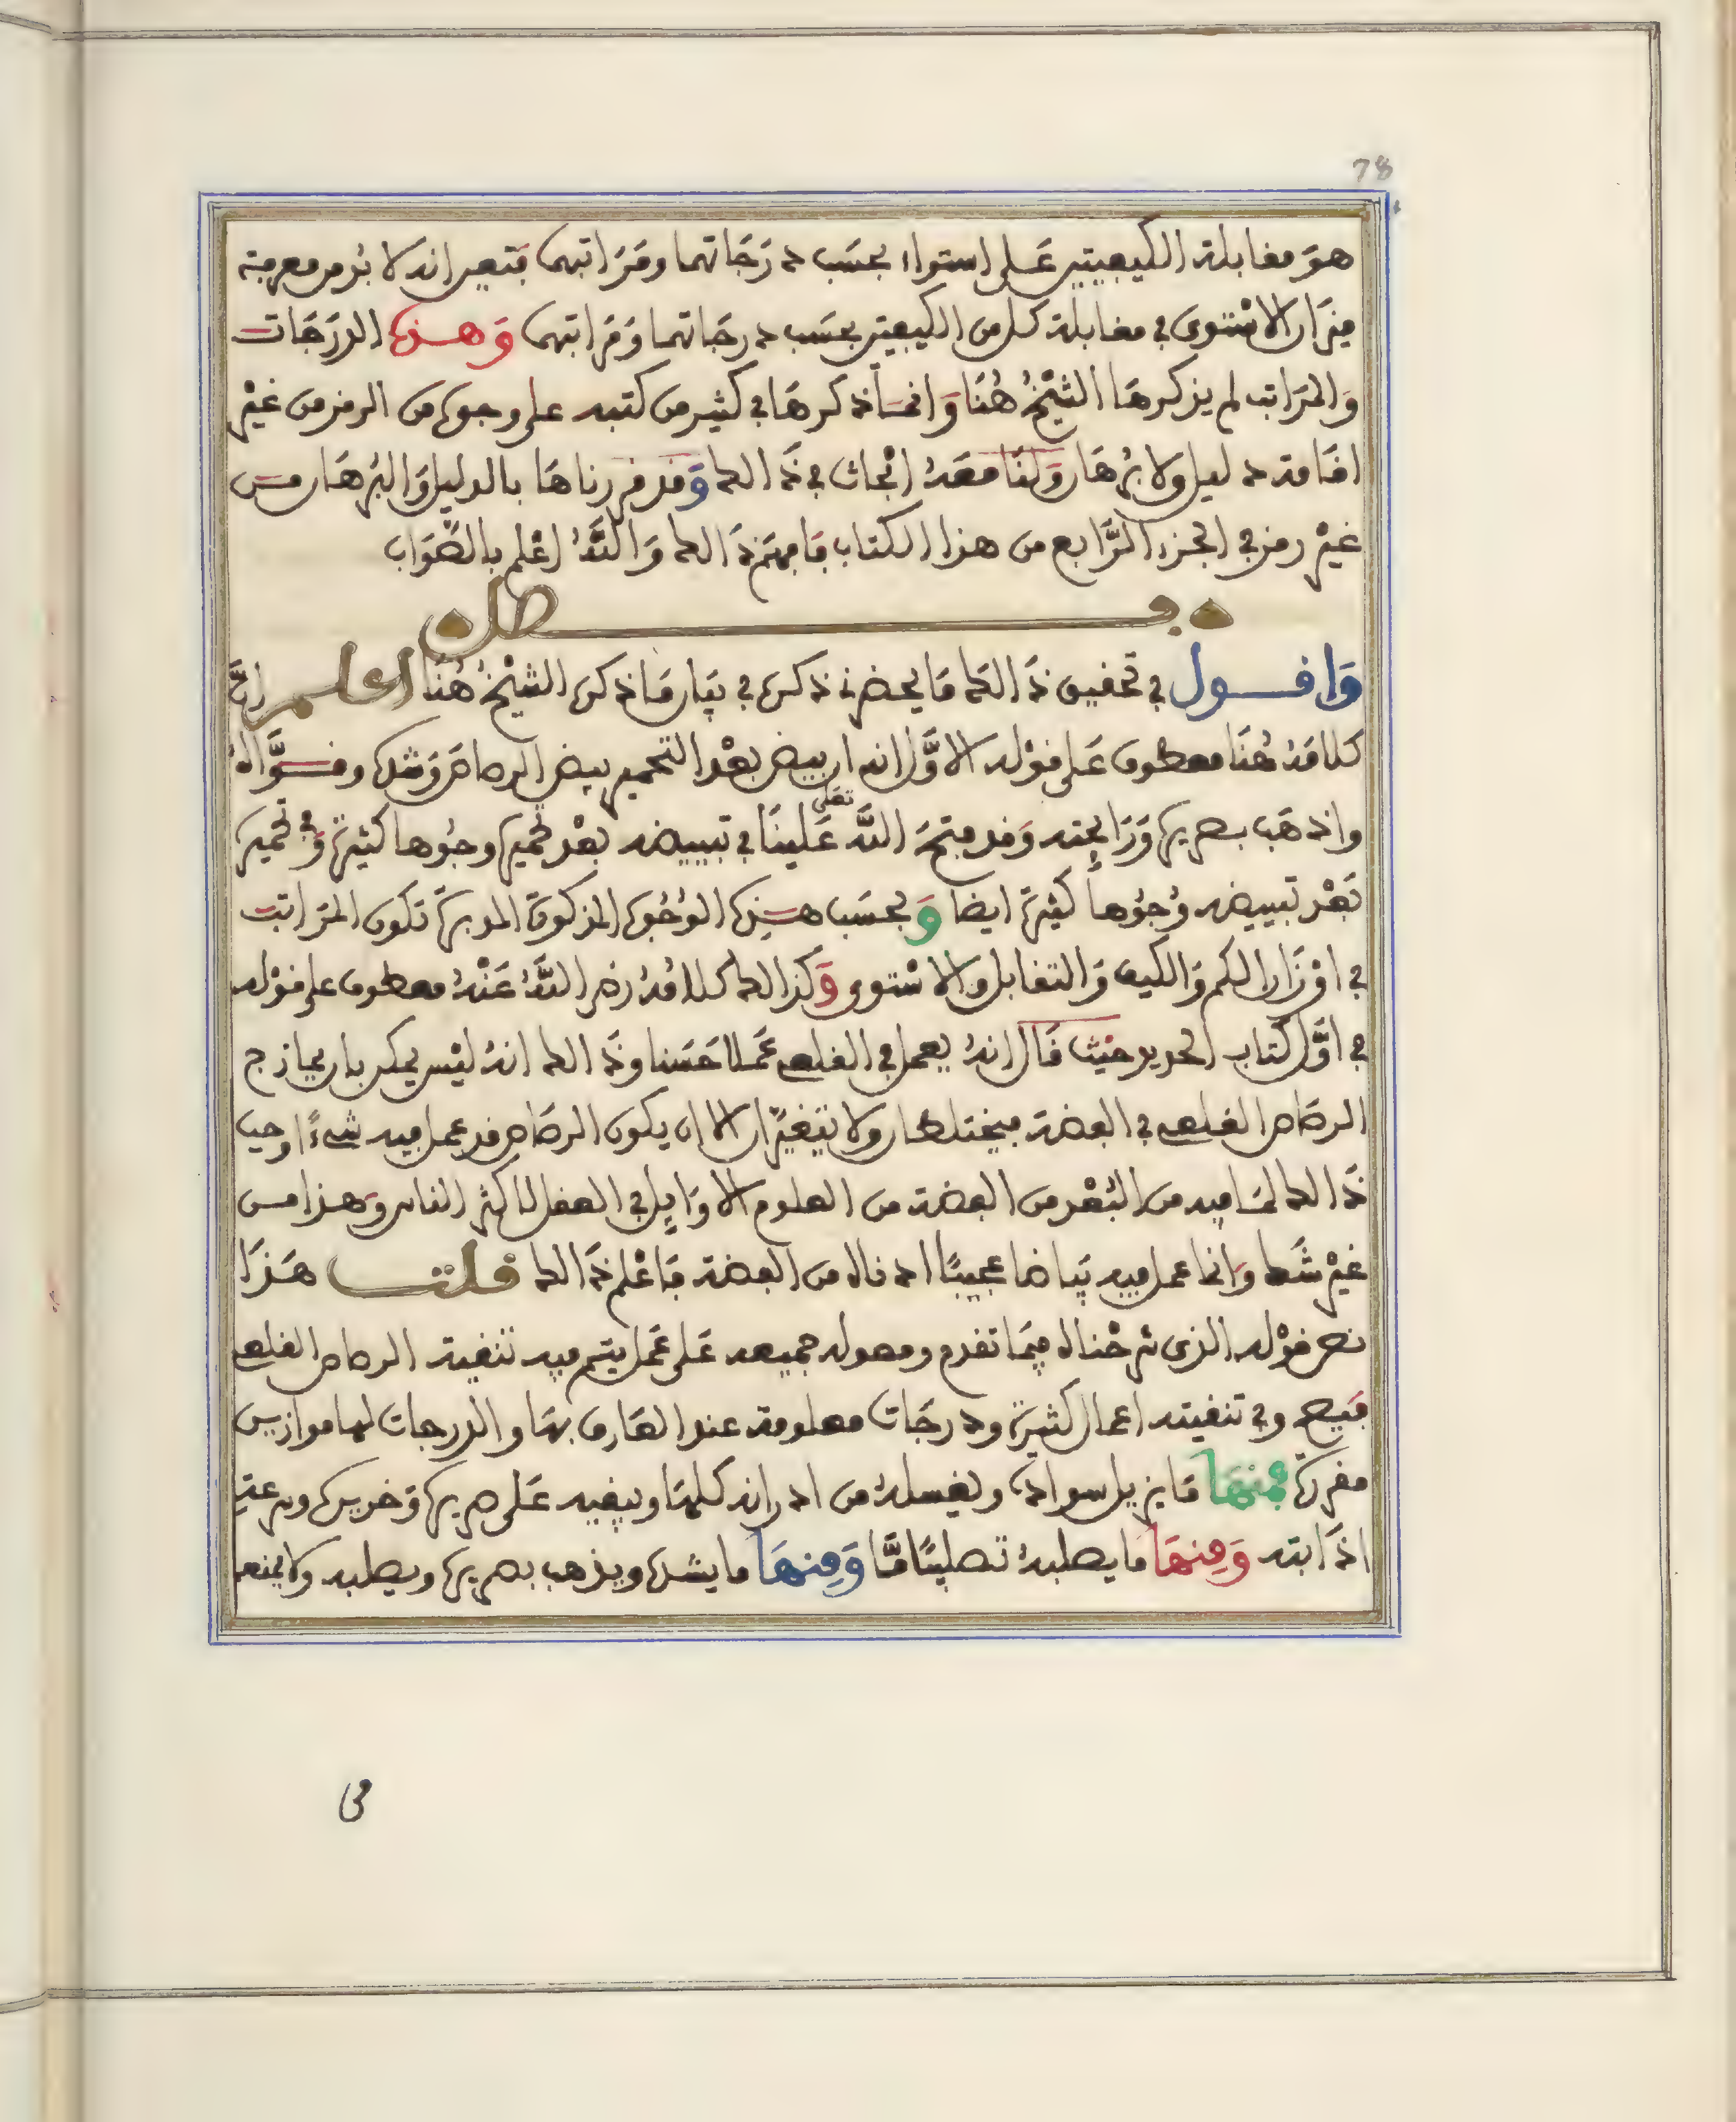 78
هو مقابلة الكيفيتين على استواء بحسب درجاتهما ومراتبهما فتعين انه لا بد من معرفة
ميزان الاستوى في مقابلة كل من الكيفيتين بحسب درجاتهما ومراتبهما وهذه الدرجات
والمراتب لم يذكرها الشيخ هنا وانما ذكرها في كثير من كتبه على وجوه من الرمز من غير
اقامة دليل ولا برهان ولنا معه ابحاث في ذالك وقد قررناها بالدليل والبرهان من
غير رمز في الجزء الرابع من هذا الكتاب فافهم ذالك والله اعلم بالصواب
فصل
واقول في تحقيق ذالك ما يحضرني ذكره في بيان ما ذكره الشيخ هنا اعلم ان
كلامه هنا معطوف على قوله الاول انه ان بيض بعد التحمير بيض الرصاص وشده وقواه
واذهب بصريره ورايحته وقد فتح الله تعلى علينا في تبييضه بعد تحميره وجوها كثيرة وفي تحميره
بعد تبييضه وجوها كثيرة ايضا وبحسب هذه الوجوه المذكورة المدبرة تكون المراتب
في اوزان الكم والكيف والتقابل والاستوى وكذالك كلامه رضي الله عنه معطوف على قوله
في اول كتاب الحديد حيث قال انه يعمل في القلعي عملا حسنا وذالك انه ليس يمكن بان يمازج
الرصاص القلعي في الفضة فيختلطان ولا يتغيران الا ان يكون الرصاص قد عمل فيه شيء اوجب
ذالك لما فيه من البعد من الفضة من العلوم الاوايل في العقل لاكثر الناس وهذا من
غير شك وانما عمل فيه بياضا عجيبا ادناه من الفضة فاعلم ذالك قلت هذا
نص قوله الذي شرحناه فيما تقدم ومعوله جميعه على عمل يتم فيه تنقية الرصاص القلعي
فيصح وفي تنقيته اعمال كثيرة ودرجات معلومة عند العارف بها والدرجات لها موازين
مقررة فمنها ما يزيل سواده ويغسله من ادرانه كلها ويبقيه على صريره وخريره وسرعة
اذابته ومنها ما يصلبه تصليبا ما ومنها ما يشده ويذهب بصريره ويصلبه ولا يمنع